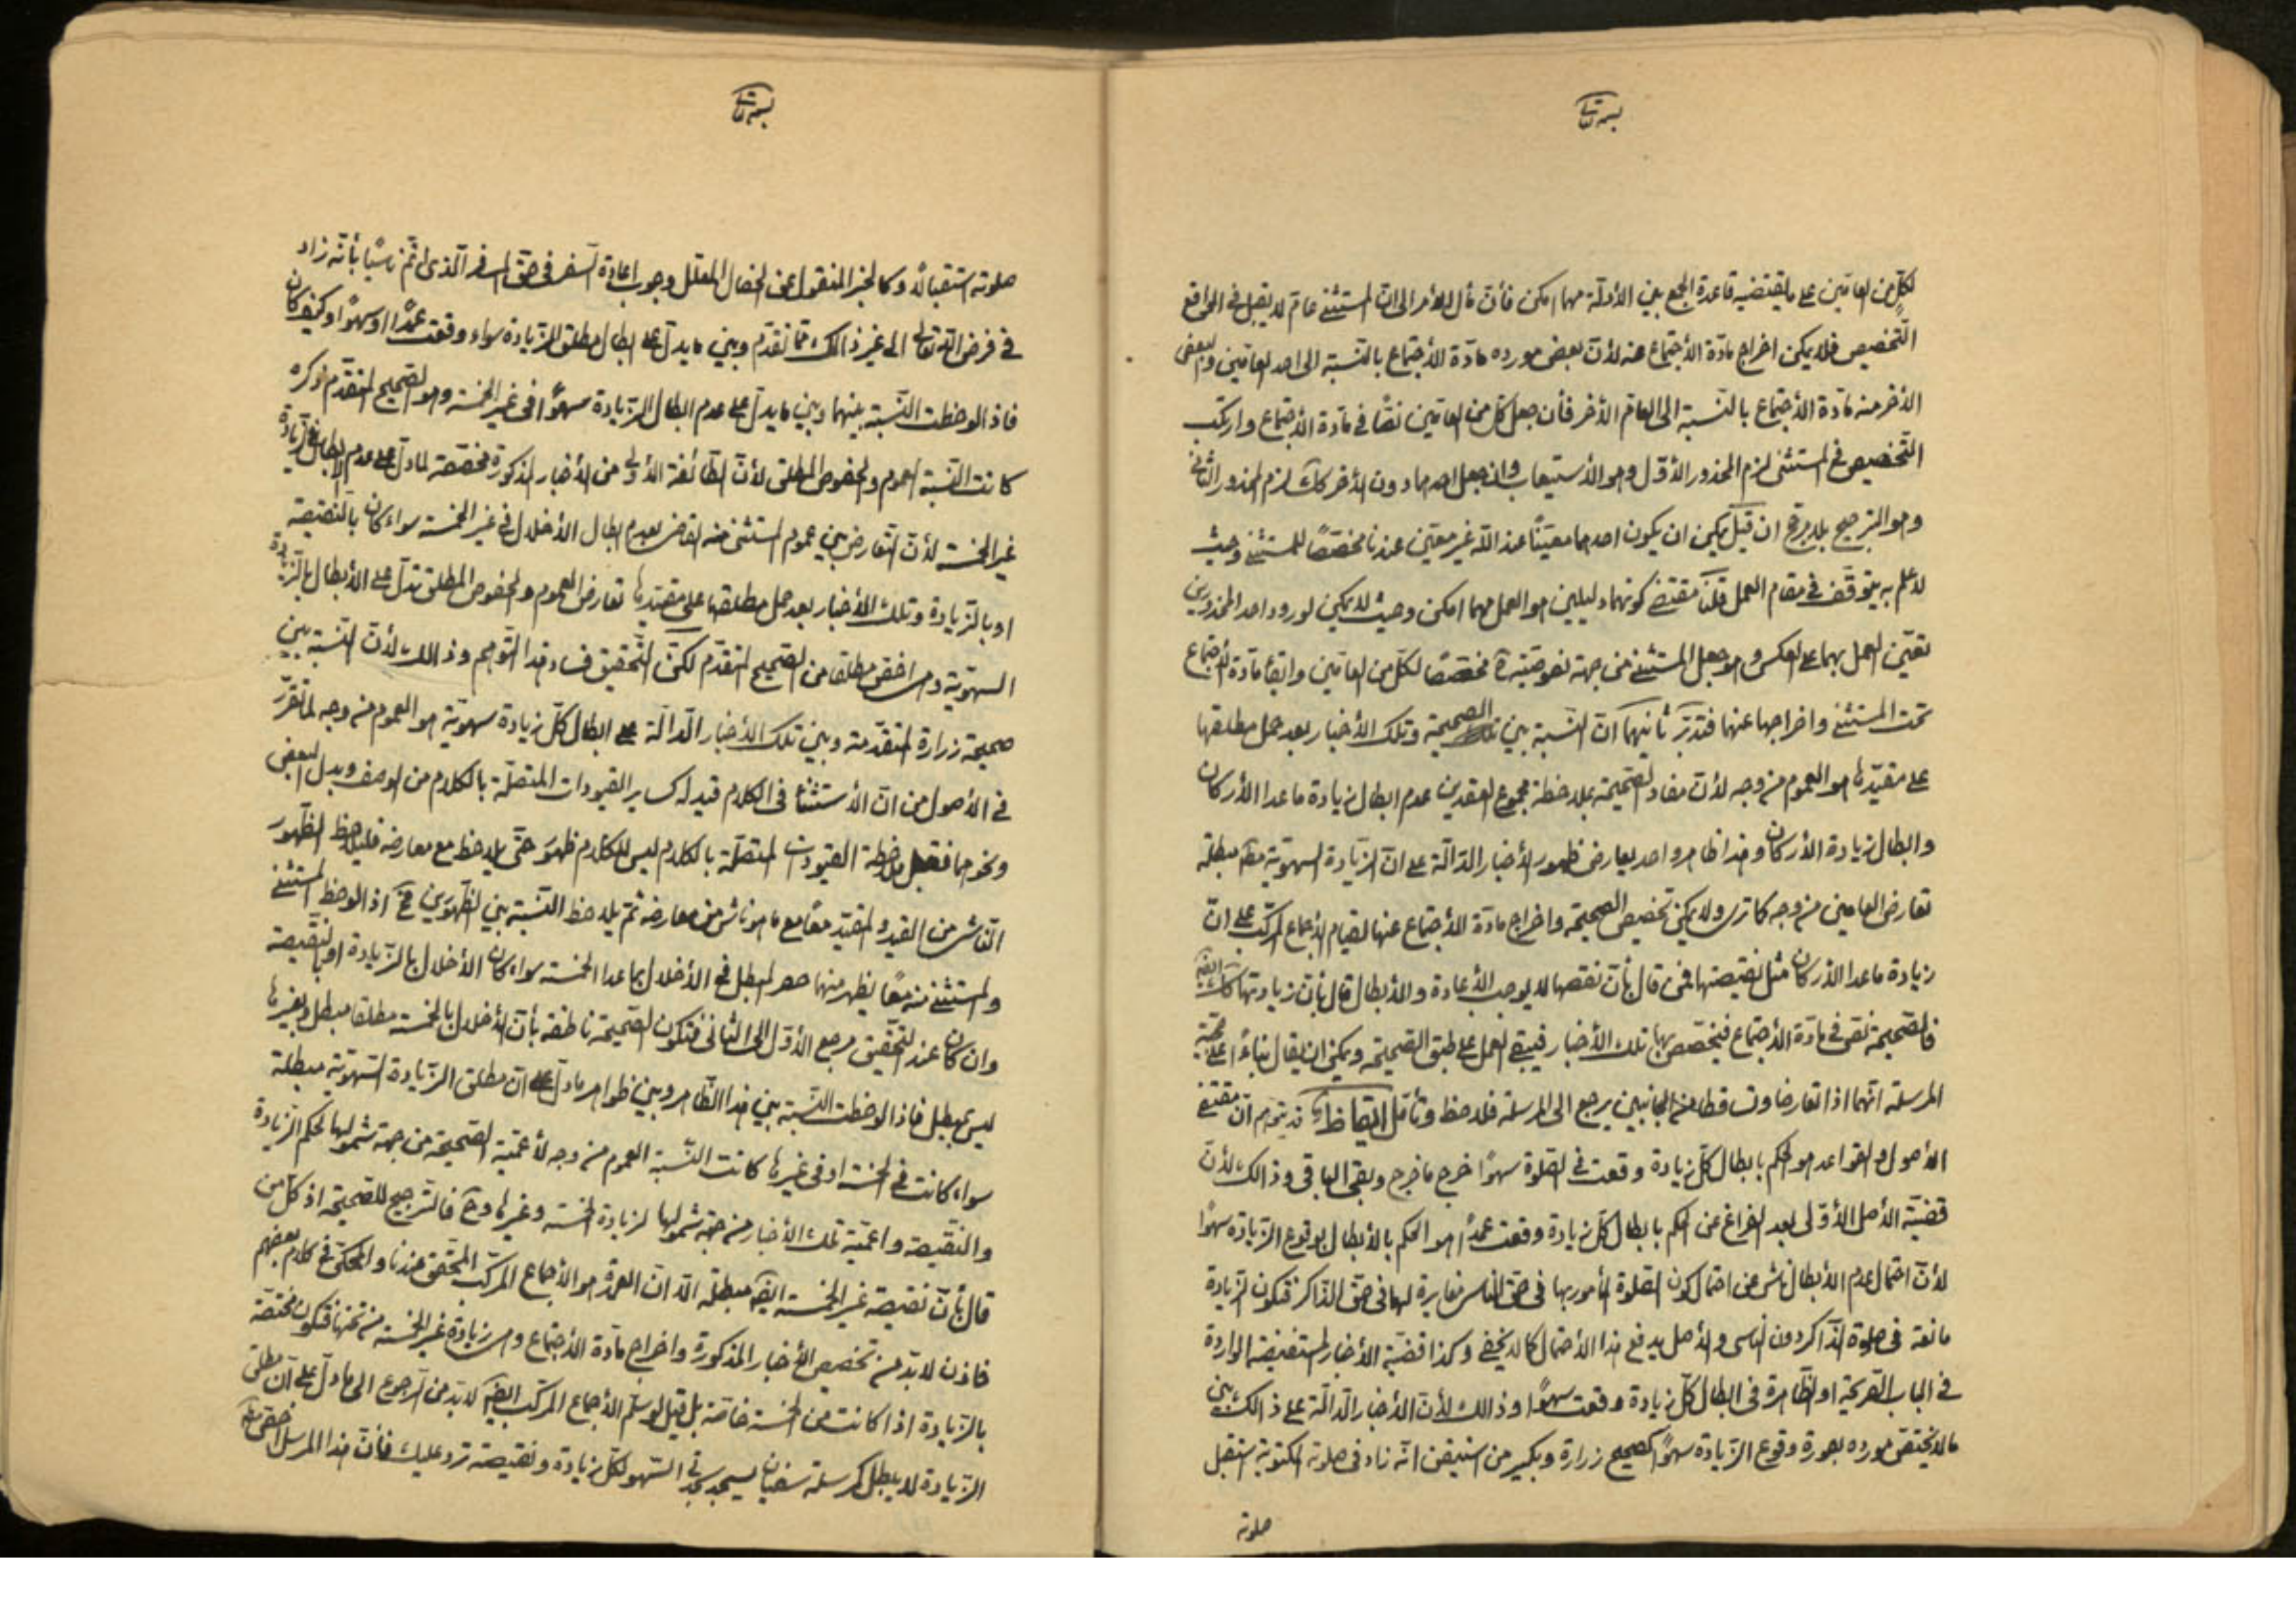 بسمه تعالى
لكل من العامين على ما يقتضيه قاعدة الجمع بين الأدلة مهما امكن فأن مأل الأمر الى ان المستثنى عام لا يقبل في الواقع
التخصيص فلا يمكن اخراج مادة الأجتماع عنه لأن بعض مورده مادة الأجتماع بالنسبة الى احد العامين والبعض
الأخر منه مادة الأجتماع بالنسبة الى العام الأخر فأن جعل كل من العامين نصًا في مادة الأجتماع وارتكب
التخصيص في المستثنى لزم المحذور الأول وهو الأستيعاب وان جعل احدهما دون الأخر كك لزم المحذور الثاني
وهو الترجيح بلا مرجح ان قيل يمكن ان يكون احدهما معينًا عند الله غير معين عندنا مخصصًا للمستثنى وحيث
لا علم به يتوقف في مقام العمل قلنا مقتضى كونهما دليلين هو العمل مهما امكن وحيث لا يمكن لورود احد المحذورين
تعين العمل بهما على العكس وهو جعل المستثنى من جهة نصوصيته مخصصًا لكل من العامين وابقاء مادة الأجتماع
تحت المستثنى واخراجها عنهما فتدبر ثانيهما ان النسبة بين الصحيحة وتلك الأخبار بعد حمل مطلقها
على مقيدها هو العموم من وجه لأن مفاد الصحيحة بملاحظة مجموع العقدين عدم ابطال زيادة ما عدا الأركان
وابطال زيادة الأركان وهذا ظاهر واحد يعارض ظهور الأخبار الدالة على ان الزيادة السهوية مط مبطلة
تعارض العامين من وجه كما ترى ولا يمكن تخصيص الصحيحة واخراج مادة الأجتماع عنها لقيام الأجماع المركب على ان
زيادة ما عدا الأركان مثل نقيصتها فمن قال بأن نقصها لا يوجب الأعادة والأبطال قال بأن زيادتها كك ايضًا
فالصحيحة نص في مادة الأجتماع فيخصص بها تلك الأخبار فيبقى العمل على طبق الصحيحة ويمكن ان يقال بناءً على حجية
المرسلة انهما اذا تعارضا وتساقطا من الجانبين يرجع الى المرسلة فلاحظ وتأمل ايقاظ قد يتوهم ان مقتضى
الأصول والقواعد هو الحكم بابطال كل زيادة وقعت في الصلوة سهوًا خرج ما خرج وبقى الباقى وذالك لأن
قضية الأصل الأولى بعد الفراغ عن الحكم بابطال كل زيادة وقعت عمدًا هو الحكم بالأبطال بوقوع الزيادة سهوًا
لأن احتمال عدم الأبطال ناش عن احتمال كون الصلوة المأمور بها في حق الناسى مغايرة لها في حق الذاكر فتكون الزيادة
مانعة في صلوة الذاكر دون الناسى والأصل يدفع هذا الأحتمال كما لا يخفى وكذا قضية الأخبار المستفيضة الواردة
في الباب الصريحة او الظاهرة في ابطال كل زيادة وقعت سهوًا وذالك لأن الأخبار الدالة على ذالك بين
ما لا يختص مورده بصورة وقوع الزيادة سهوًا كصحيح زرارة وبكير من استيقن انه زاد في صلوته المكتوبة استقبل
صلوته
بسمه تعالى
صلوته استقبالًا وكالخبر المنقول عن الخصال المعلل وجوب اعادة السفر في حق المسافر الذى اتم ناسيًا بأنه زاد
في فرض الله تعالى الى غير ذالك مما تقدم وبين ما يدل على ابطال مطلق الزيادة سواء وقعت عمدًا او سهوًا وكيف كان
فاذا لوحظت النسبة بينهما وبين ما يدل على عدم ابطال الزيادة سهوًا في غير الخمسة وهو الصحيح المتقدم ذكره
كانت النسبة العموم والخصوص المطلق لأن الطائفة الأولى من الأخبار المذكورة مخصصة لما دل على عدم الابطال زيادة
غير الخمسة لأن التعارض بين عموم المستثنى منه القاضى بعدم ابطال الأخلال في غير الخمسة سواء كان بالنقيصة
او بالزيادة وتلك الأخبار بعد حمل مطلقها على مقيدها تعارض العموم والخصوص المطلق تدل على الأبطال بالزيادة
السهوية وهى اخص مطلقا من الصحيح المتقدم لكن التحقيق فساد هذا التوهم وذالك لأن النسبة بين
صحيحة زرارة المتقدمة وبين تلك الأخبار الدالة على ابطال كل زيادة سهوية هو العموم من وجه لما تقرر
في الأصول من ان الأستثناء في الكلام قيد له كساير القيودات المتصلة بالكلام من الوصف وبدل البعض
ونحوهما فقبل ملاحظة القيودات المتصلة بالكلام ليس للكلام ظهور حتى يلاحظ مع معارضه فليلاحظ الظهور
الناشى من القيد والمقيد معًا مع ما هو ناش من معارضه ثم يلاحظ النسبة بين الظهورين فح اذا لوحظ المستثنى
والمستثنى منه معًا يظهر منهما حصر المبطل في الأخلال بما عدا الخمسة سواء كان الأخلال بالزيادة او بالنقيصة
وان كان عند التحقيق مرجع الأول الى الثانى فتكون الصحيحة ناطقة بأن الأخلال بالخمسة مطلقا مبطل وبغيرها
ليس بمبطل فاذا لوحظت النسبة بين هذا الظاهر وبين ظواهر ما دل على ان مطلق الزيادة السهوية مبطلة
سواء كانت في الخمسة او في غيرها كانت النسبة العموم من وجه لأعمية الصحيحة من جهة شمولها لحكم الزيادة
والنقيصة واعمية تلك الأخبار من جهة شمولها لزيادة الخمسة وغيرها وح فالترجيح للصحيحة اذ كل من
قال بأن نقيصة غير الخمسة ايضًا مبطلة الا ان العمدة هو الأجماع المركب المحقق عندنا والمحكى في كلام بعضهم
فاذن لا بد من تخصيص الأخبار المذكورة واخراج مادة الأجتماع وهى زيادة غير الخمسة من تحتها فتكون مختصة
بالزيادة اذا كانت من الخمسة خاصة بل قيل لو سلم الأجماع المركب ايضًا لا بد من الرجوع الى ما دل على ان مطلق
الزيادة لا يبطل كمرسلة سفيان يسجد سجدتى السهو لكل زيادة ونقيصة ترد عليك فأن هذا المرسل اخص